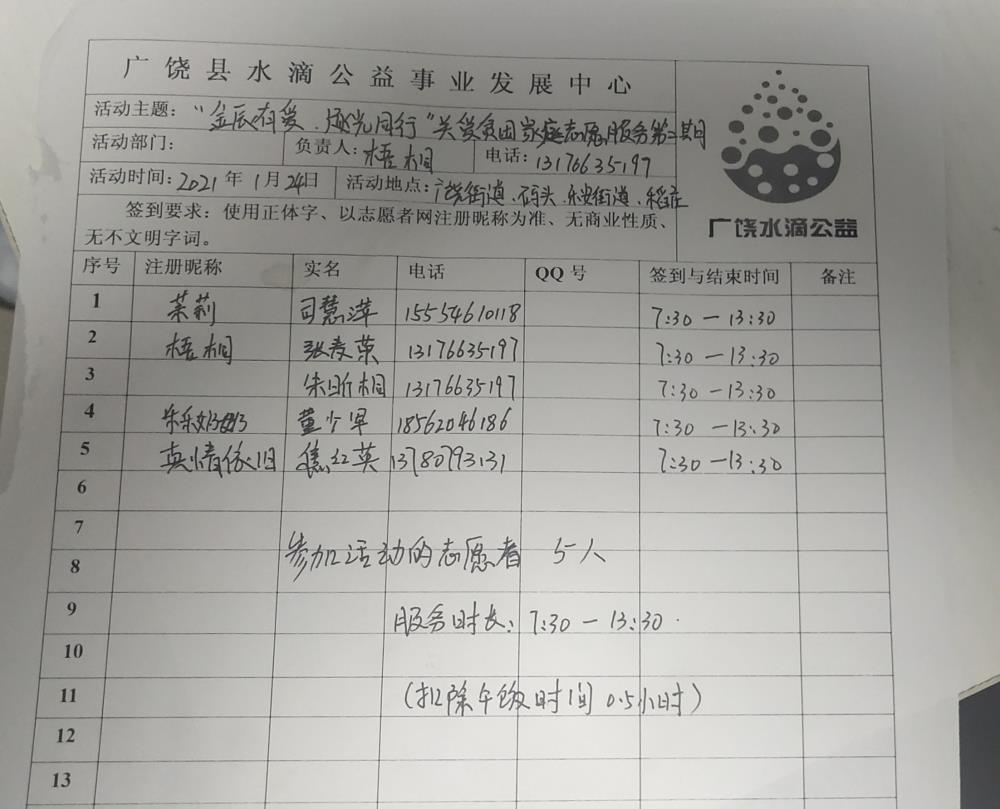 广饶县水滴公益事业发展中心
活动主题：“金辰有爱.逐光同行”关爱贫困家庭志愿服务第二期
活动部门： 负责人：梧桐 电话：13176635197
活动时间：2021年1月24日 活动地点：广饶街道.码头.乐安街道.稻庄
签到要求：使用正体字、以志愿者网注册昵称为准、无商业性质、
无不文明字词。
广饶水滴公益
序号 注册昵称 实名 电话 QQ号 签到与结束时间 备注
1 茉莉 司慧萍 15554610118 7:30—13:30
2 梧桐 张麦荣 13176635197 7:30—13:30
3 朱昕桐 13176635197 7:30—13:30
4 乐乐奶奶 董少军 18562046186 7:30—13:30
5 真情依旧 焦红英 13780793131 7:30—13:30
6
7
参加活动的志愿者 5人
8
9 服务时长：7:30—13:30.
10
11 (扣除午饭时间0.5小时)
12
13